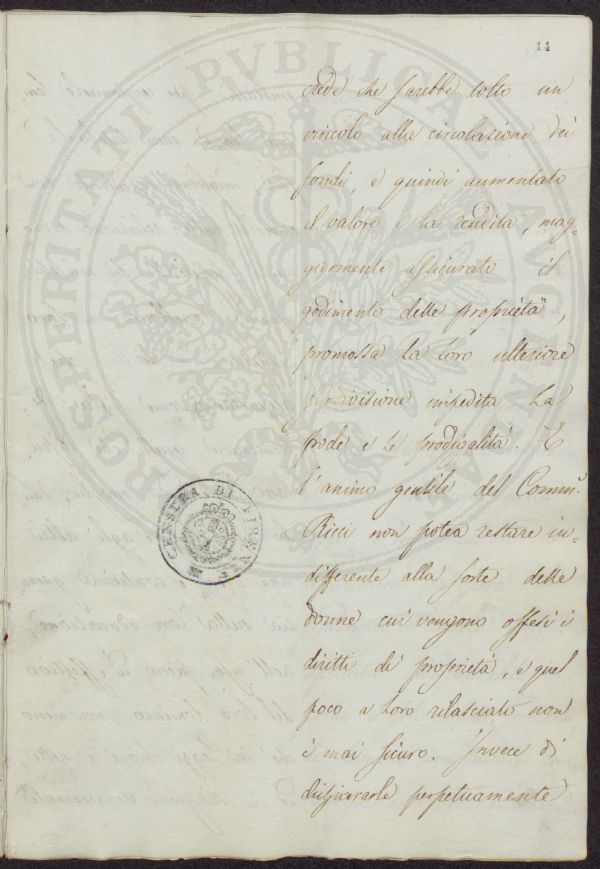 14
crede che sarebbe tolto un
vincolo alla circolazione dei
fondi, e quindi aumentato
il valore e la rendita, mag-
giormente assicurato il
godimento delle proprietà,
promossa la loro ulteriore
suddivisione impedita la
frode e le prodigalità. E
l'animo gentile del Comm.
Ricci non potea restare in-
differente alla sorte delle
donne cui vengono offesi i
diritti di proprietà, e quel
poco a loro rilasciato non
è mai sicuro. Invece di
dichiararle perpetuamente
CENSURA DI FIRENZE
PROSPERITATI PUBLICAE AUGENDAE